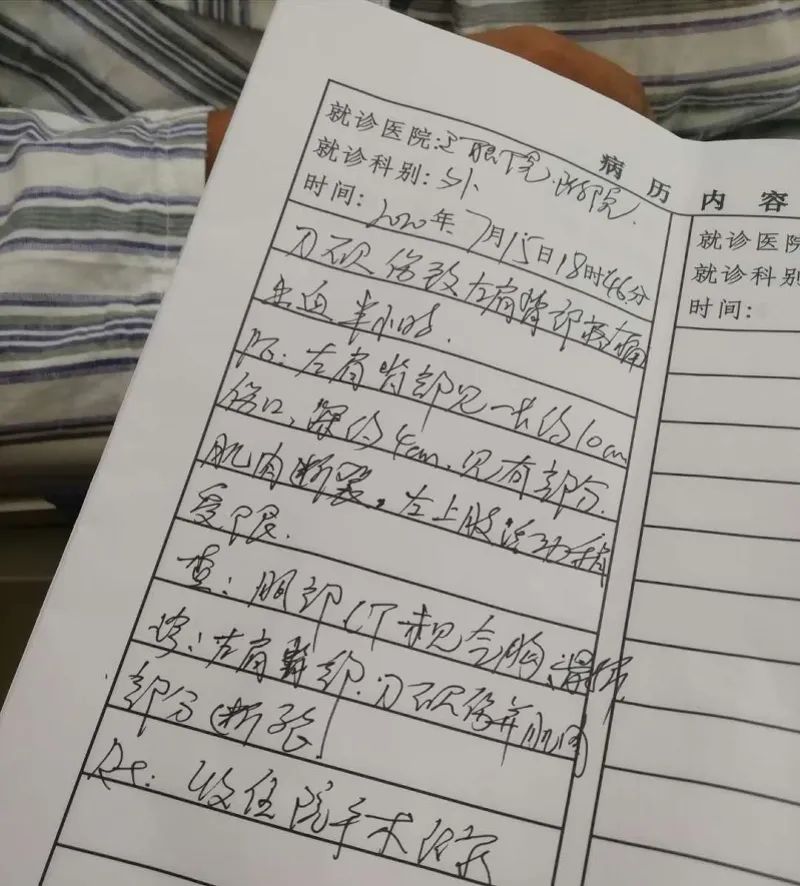 病历内容
就诊医院:
就诊科别:外
时间:2020年7月15日18时46分
刀砍伤致左肩背部疼痛
出血半小时.
左肩背部见一长约10cm
伤口,深约4cm.见有部分
肌肉断裂,左上肢活动稍
受限.
查:胸部CT未见气胸、
诊:左肩背部刀砍伤并肌肉
部分断裂
收住院手术治疗
就诊医院
就诊科别
时间: